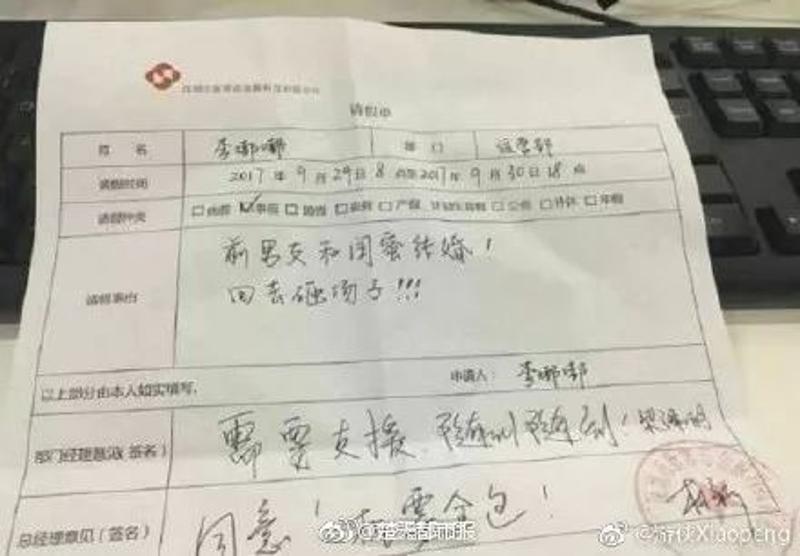 请假单
姓 名 李嘟嘟 部 门 运营部
请假时间 2017年9月29日8点至2017年9月30日18点
请假种类 □病假 ☑事假 □婚假 □丧假 □产假 □公假 □补休 □年假
请假事由
前男友和闺蜜结婚！
回去砸场子!!!
以上部分由本人如实填写。 申请人： 李嘟嘟
部门经理意见(签名) 需要支援、随叫随到！
总经理意见(签名) 同意！ 全包！
@楚天都市报
@游侠Xiaopeng